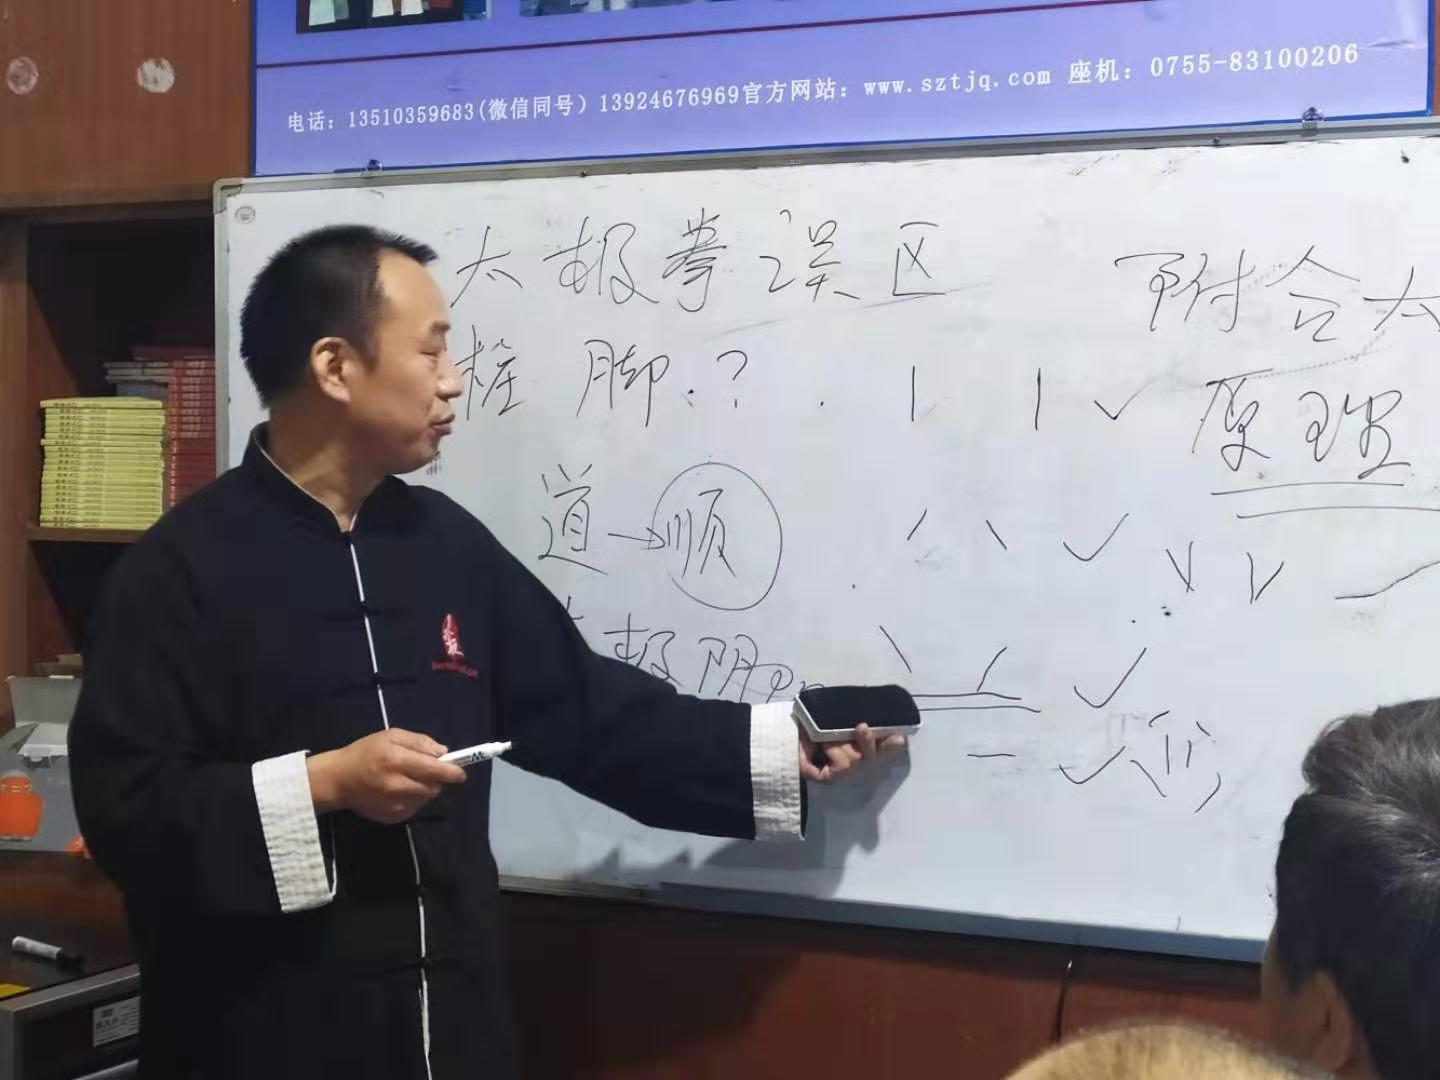 电话：13510359683(微信同号）13924676969官方网站：www.sztjq.com 座机：0755-83100206
太极拳误区
附合太
桩脚.？
原理
道→顺
极阴